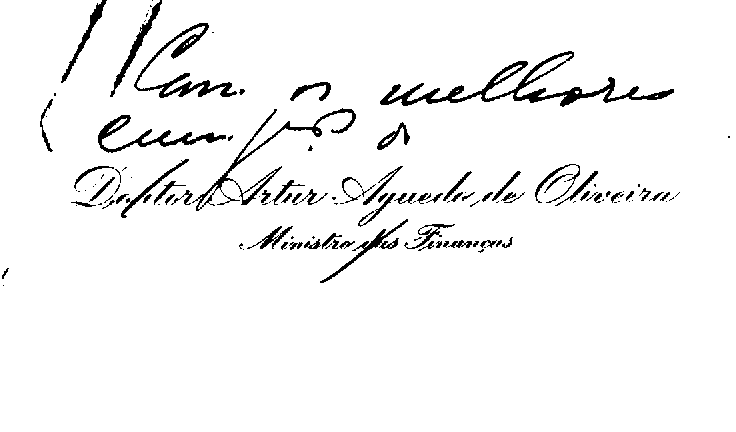 Com os melhores
cumptos de
Doutor Artur Aguedo de Oliveira
Ministro das Finanças